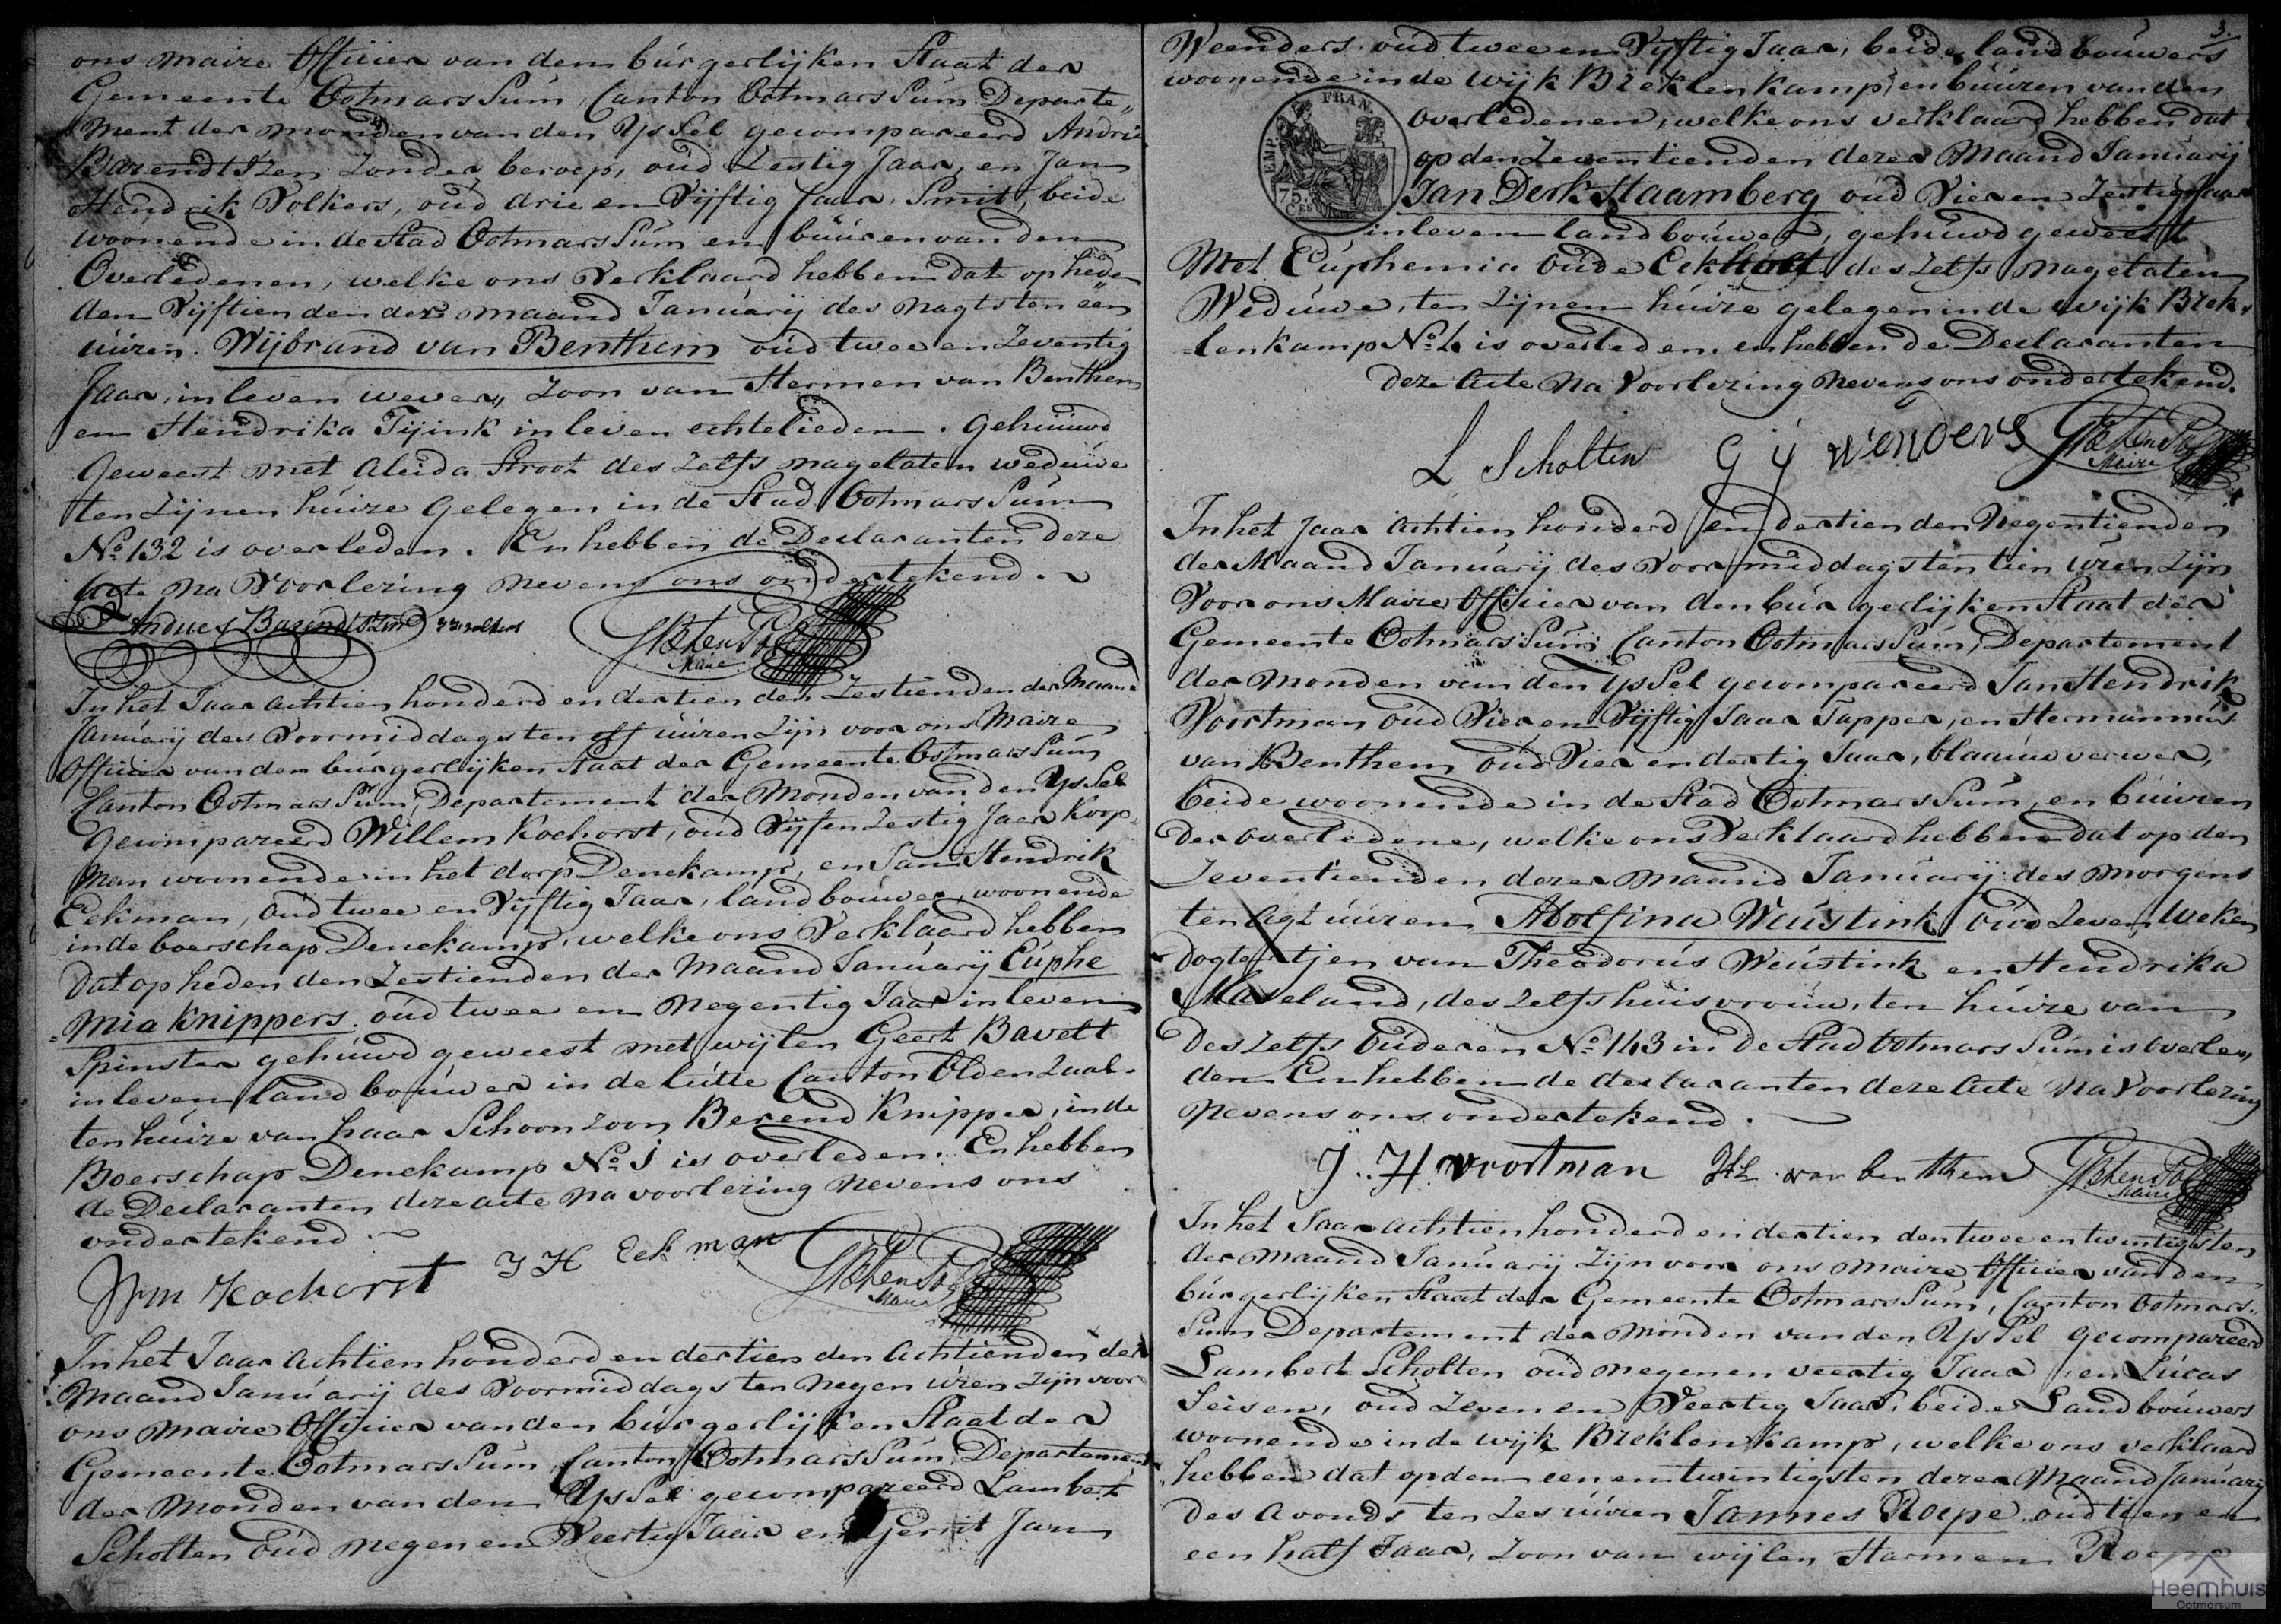 ons maire Officier van den burgerlijken Staat der
Gemeente Ootmarssum, Canton Ootmarssum Departe„
ment der monden van den Yssel gecompareerd Andries
Barendtszen zonder beroep, oud Zestig Jaar, en Jan
Hendrik Volkers, oud drie en Vijftig Jaar, Smit, beide
woonende in de Stad Ootmarssum en buuren van den
Overledenen, welke ons Verklaard hebben dat op heden
den Vijftienden der maand Januarij des nagts ten een
uuren. Wijbrand van Benthem oud twee en Zeventig
Jaar, in leven wever, Zoon van Hermen van Benthem
en Hendrika Tijink in leven echtelieden. Gehuuwd
Geweest met Aleida Stroot des zelfs nagelaten weduwe
ten Zijnen huize Gelegen in de Stad Ootmarssum
No 132 is overleden. En hebben de Declaranten deze
Acte na Voorlezing nevens ons ondertekend.
Andries Barendtszen volkers
Maire
In het Jaar achtien honderd en dertien den Zestienden der Maand
Januarij des Voormiddags ten elf uuren Zijn voor ons Maire
Officier van den burgerlijken Staat der Gemeente Ootmarssum
Canton Ootmarssum, Departement der Monden van den Yssel
Gecompareerd Willem Kochorst, oud Vijf en Zestig Jaer Koop„
man woonende in het dorp Denekamp, en Jan Hendrik
Eekman, oud twee en Vijftig Jaar, landbouwer, woonende
in de boerschap Denekamp, welke ons Verklaard hebben
dat op heden den Zestienden der Maand Januarij Euphe
=mia Knippers. oud twee en Negentig Jaar in leven
Spinster gehuwd geweest met wijlen Geert Bavelt
in leven landbouwer in de lutte Canton Oldenzaal.
ten huize van haar Schoonzoon Berend Knipper, in de
Boerschap Denekamp No 1 is overleden. En hebben
de Declaranten deze acte na voorlezing nevens ons
ondertekend.
Wm Kochorst J H Eekman
Maire
In het Jaar Achtien honderd en dertien den Achtienden der
Maand Januarij des Voormiddags ten Negen uren zijn voor
ons Maire Officier van den burgerlijken Staat der
Gemeente Ootmarssum Canton Ootmarssum, Departement
der Monden van den Yssel gecompareerd Lambert
Scholten oud negen en Veertig Jaar en Gerrit Jan
3.
Weenders. oud twee en Vijftig Jaar, beide landbouwers
woonende in de Wijk Breklenkamp, en buuren van den
EMP. FRAN.
75.
Overledenen, welke ons verklaard hebben dat
op den Zeventienden dezer Maand Januarij
Jan Derk Staamberg oud Vier en Zestig Jaar
in leven landbouwer, gehuwd geweest
Met Euphemia Oude des zelfs nagelaten
Weduwe, ten Zijnen huize gelegen in de wijk Brek„
=lenkamp No 4 is overleden. en hebben de Declaranten
deze Acte na Voorlezing nevens ons ondertekend.
L Scholten G J wenders
Maire
In het Jaar Achtien honderd en dertien den Negentienden
der Maand Januarij des Voormiddags ten tien uren zijn
Voor ons Maire Officier van den burgerlijken Staat der
Gemeente Ootmarssum Canton Ootmarssum, Departement
der Monden van den Yssel gecompareerd Jan Hendrik
Voortman oud Vier en Vijftig Jaar Tapper, en Hermannus
van Benthem oud Vier en dertig Jaar, blaauw verwer,
beide woonende in de Stad Ootmarssum, en buuren
der Overledene, welke ons Verklaard hebben dat op den
Zeventienden dezer Maand Januarij des Morgens
ten Agt uuren Adolfina Weustink oud Zeven Weken
dogtertjen van Theodorus Weustink en Hendrika
Maseland, des zelfs huisvrouw, ten huize van
Des Zelfs Ouderen No 143 in de Stad Ootmarssum is Overle„
den En hebben de declaranten deze Acte Na Voorlezing
Nevens ons ondertekend.
J. H voortman van benthem
Maire
In het Jaar Achtien honderd en dertien den twee en twintigsten
der Maand Januarij zijn voor ons Maire Officier van den
burgerlijken Staat der Gemeente Ootmarssum, Canton Ootmars„
sum Departement der Monden van den Yssel gecompareerd
Lambert Scholten oud negen en veertig Jaar, en Lucas
Seisen, oud Zeven en Veertig Jaar, beide Landbouwers
woonende in de wijk Breklenkamp, welke ons verklaard
hebben dat op den een en twintigsten dezer Maand Januarij
Des avonds ten Zes uuren Jannes Roepe oud tien en
een half Jaar, Zoon van wijlen Harmen
Heemhuis
Ootmarsum